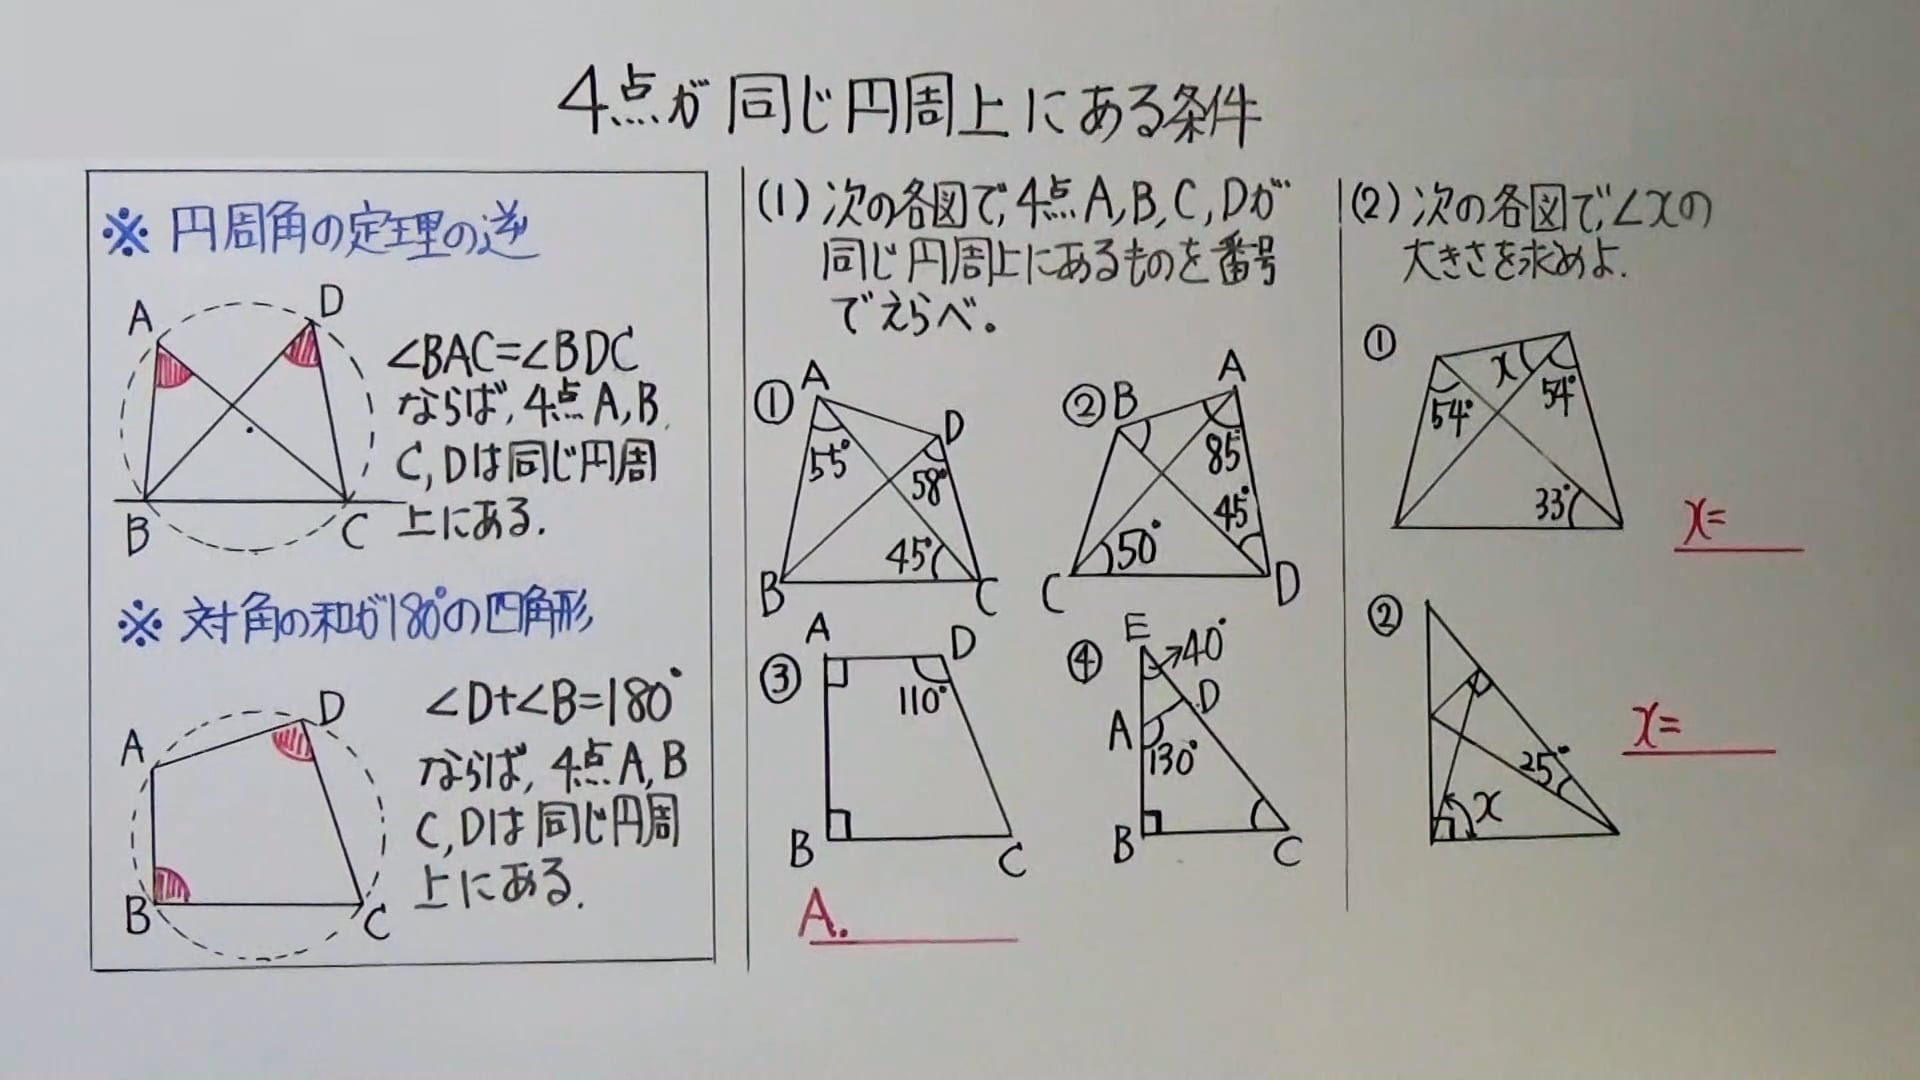 4点が同じ円周上にある条件
※ 円周角の定理の逆
A
D
B
C
∠BAC=∠BDC
ならば,4点A,B,
C,Dは同じ円周
上にある.
※ 対角の和が180°の四角形
A
D
B
C
∠D+∠B=180°
ならば,4点A,B
C,Dは同じ円周
上にある.
(1) 次の各図で,4点A,B,C,Dが
同じ円周上にあるものを番号
でえらべ。
①
A
D
55°
58°
45°
B
C
②
B
A
85°
45°
50°
C
D
③
A
D
110°
B
C
④
E
40°
D
A
130°
B
C
A.
(2) 次の各図で,∠xの
大きさを求めよ.
①
x
54°
54°
33°
x=
②
25°
x
x=